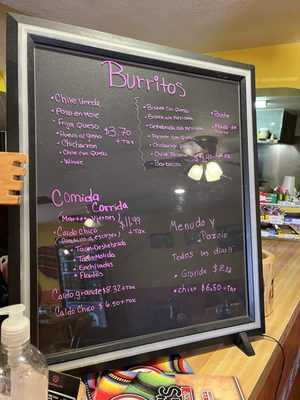 Burritos
• Chile Verde
• Papa en Mole
• Frijol Queso
• Huevo al gusto
• Chicharron
• Chile con Queso
• Winnie
$3.70 + Tax
• Bisteck con Queso
• Bisteck ala Mexicana
• Deshebrada ala mexicana
• Chicharron
• Chile Relleno
• Barbacoa
+ Tax
• Buche
Comida Corrida
Martes Viernes
• Caldo chico
(Platillo a escoger)
$11.99 + Tax
• Tacos Deshebrada
• Tacos Molida
• Enchiladas
• Flautas
Caldo grande $8.32 + Tax
Caldo chico $6.50 + Tax
Menudo y Pozole
Todos los dias!!
• Grande $8.32
• chico $6.50 + Tax